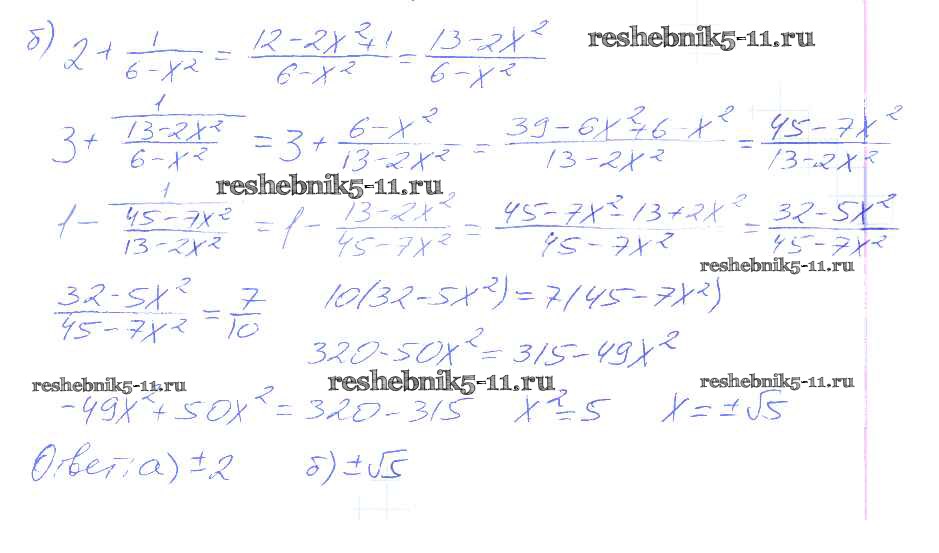 б) 2 + 1/(6-x²) = (12-2x²+1)/(6-x²) = (13-2x²)/(6-x²) reshebnik5-11.ru
3 + 1/((13-2x²)/(6-x²)) = 3 + (6-x²)/(13-2x²) = (39-6x²+6-x²)/(13-2x²) = (45-7x²)/(13-2x²)
reshebnik5-11.ru
1 - 1/((45-7x²)/(13-2x²)) = 1 - (13-2x²)/(45-7x²) = (45-7x²-13+2x²)/(45-7x²) = (32-5x²)/(45-7x²)
reshebnik5-11.ru
(32-5x²)/(45-7x²) = 7/10 10(32-5x²) = 7(45-7x²)
320-50x² = 315-49x²
reshebnik5-11.ru reshebnik5-11.ru reshebnik5-11.ru
-49x²+50x² = 320-315 x²=5 x=±√5
Ответ: а) ±2 б) ±√5